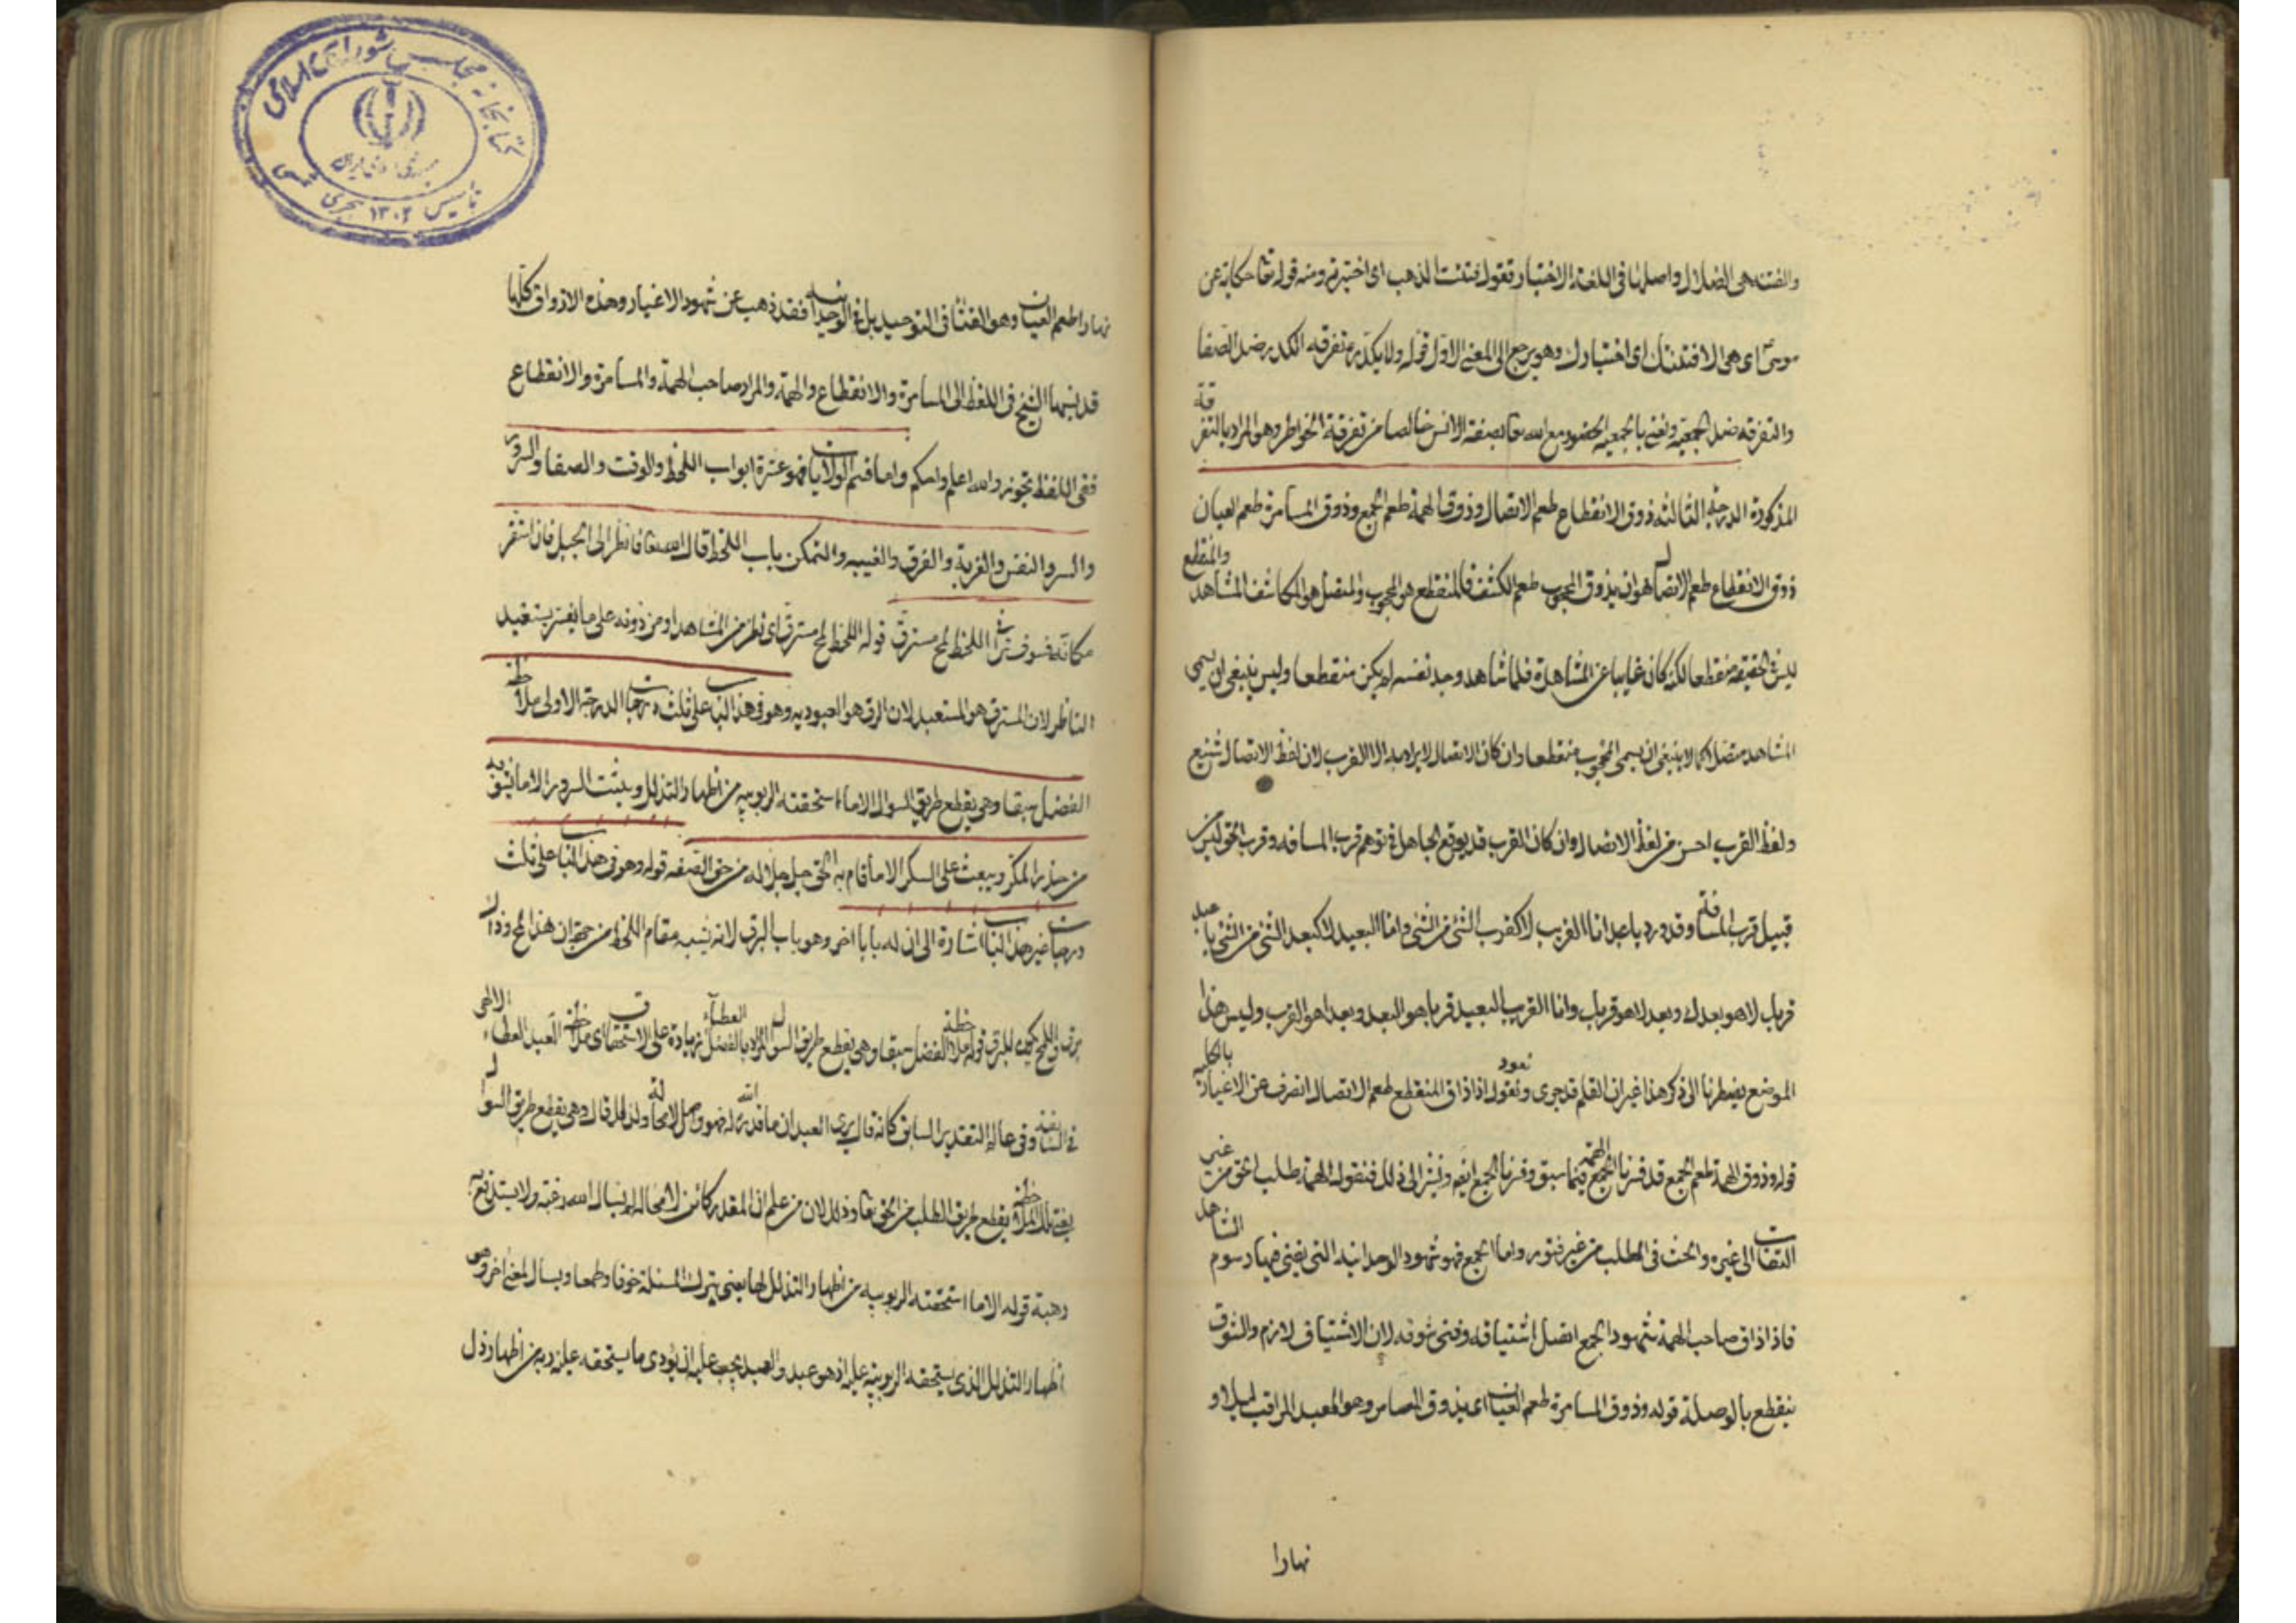 والفتنه هى الضلال واصلها فى اللغة الاختبار تقول فتنت الذهب اى اختبرته ومنه قوله تعا حكاية عن
موسىٰ اى هى الا فتنتك اى اختبارك وهو يرجع الى المعنى الاول قوله ولا يكدره تفرقه الكدر ضد الصفا
والتفرقه ضد الجمعية ونعنى بالجمعيه الحضور مع الله تعا بصفة الانس خالصا من تفرقة الخواطر وهو المراد بالتفرقة
المذكورة الدرجة الثالثه ذوق الانقطاع طعم الاتصال وذوق الهمة طعم الجمع وذوق المسامرة طعم العيان
ذوق الانقطاع طعم الاتصال هو ان يذوق المحجوب طعم الكشف فالمنقطع هو المحجوب والمتصل هو المكاشف المشاهد والمنقطع
ليس فى الحقيقه منقطعا لكنه كان غايبا عن المشاهدة فلما شاهد وجد نفسه لم يكن منقطعا وليس ينبغى ان يسمى
المشاهد متصلا كما لا ينبغى ان يسمى المحجوب منقطعا وان كان الاتصال لا يراد به الا القرب لان لفظ الاتصال شنيع
ولفظ القرب احسن من لفظ الاتصال وان كان القرب قد يوقع الجاهل فى توهم قرب المسافه وقرب الحق ليس من
قبيل قرب المسافة وقد ورد يا عبد انا القريب لا كقرب الشئ من الشئ وانا البعيد لا كبعد الشئ من الشئ يا عبد
قربك لا هو بعدك وبعدك لا هو قربك وانا القريب البعيد قربا هو البعد وبعدا هو القرب وليس هذا
الموضع يضطرنا الى ذكر هذا غير ان القلم قد جرى ونعود ونقول اذا ذاق المنقطع طعم الاتصال انصرف عن الاغيار بالكلية
قوله وذوق الهمة طعم الجمع قد فسرنا الهمة فيما سبق وفسرنا الجمع ايضا ونشير الى ذلك فنقول الهمة طلب الحق من غير
التفات الى غيره والحث فى الطلب من غير فتور واما الجمع فهو شهود الوحدانية التى يفنى فيها رسوم الشاهد
فاذا ذاق صاحب الهمة شهود الجمع اتصل اشتياقه وفنى شوقه لان الاشتياق لازم والشوق
ينقطع بالوصلة قوله وذوق المسامرة طعم العيان اى يذوق المسامر وهو العبد المراقب ليلا و
نهارا
نهارا طعم العيان وهو الفنا فى التوحيد بل فى الوحدانية فقد ذهب عن شهود الاغيار وهذه الاذواق كلها
قد نسبها الشيخ فى اللفظ الى المسامرة والانقطاع والهمة والمراد صاحب الهمة والمسامرة والانقطاع
ففى اللفظ تجوز والله اعلم واحكم واما قسم الولايات فهو عشرة ابواب اللحظ والوقت والصفا والسرور
والسر والنفس والغربة والغرق والغيبه والتمكن باب اللحظ قال الله تعا فانظر الى الجبل فان استقر
مكانه فسوف ترانى اللحظ لمح مسترق قوله اللحظ لمح مسترق اى نظر من المشاهد او من دونه على ما يفسر يستعبد
الناظر لان المسترق هو المستعبد لان الرق هو العبوديه وهو فى هذا الباب على ثلث درجات الدرجة الاولى ملاحظة
الفضل سبقا وهى يقطع طريق السوال الا ما استحقته الربوبيه من اظهار التذلل وينبت السرور الا ما يشوبه
من حذر المكر ويبعث على الشكر الا ما قام به الحق جل جلاله من حق الصفه قوله وهو فى هذا الباب على ثلث
درجات غير هذا الباب اشارة الى ان له بابا اخر وهو باب البرق لانه يشبه مقام اللحظ من جهة ان هذا لمح وذاك
برق واللمح يكون للبرق قوله ملاحظة الفضل سبقا وهى يقطع طريق السوال المراد بالفضل العطاء زيادة على الاستحقاق اى ملاحظة العبد العطاء الالهى
فى السابقة وفى حالة التقدير السابق كانه قال يرى العبد ان ما قدر الله له فهو واصل لا محالة ولذلك قال وهى يقطع طريق السوال
يعنى تلك الملاحظة يقطع طريق الطلب من الحق تعا وذلك لان من علم ان المقدر كائن لا محالة لم يسال الله رغبة ولا يستدفعه
رهبة قوله الا ما استحقته الربوبيه من اظهار التذلل لها يعنى يترك المسئلة خوفا وطمعا ويسال لمعنى اخر وهو
اظهار التذلل الذى يستحقه الربوبية عليه اذ هو عبد والعبد يجب عليه ان يؤدى ما يستحقه عليه ربه من اظهار ذل
كتابخانه مجلس شوراى اسلامى
جمهورى اسلامى ايران
تأسيس ۱۳۰۲ هجرى شمسى